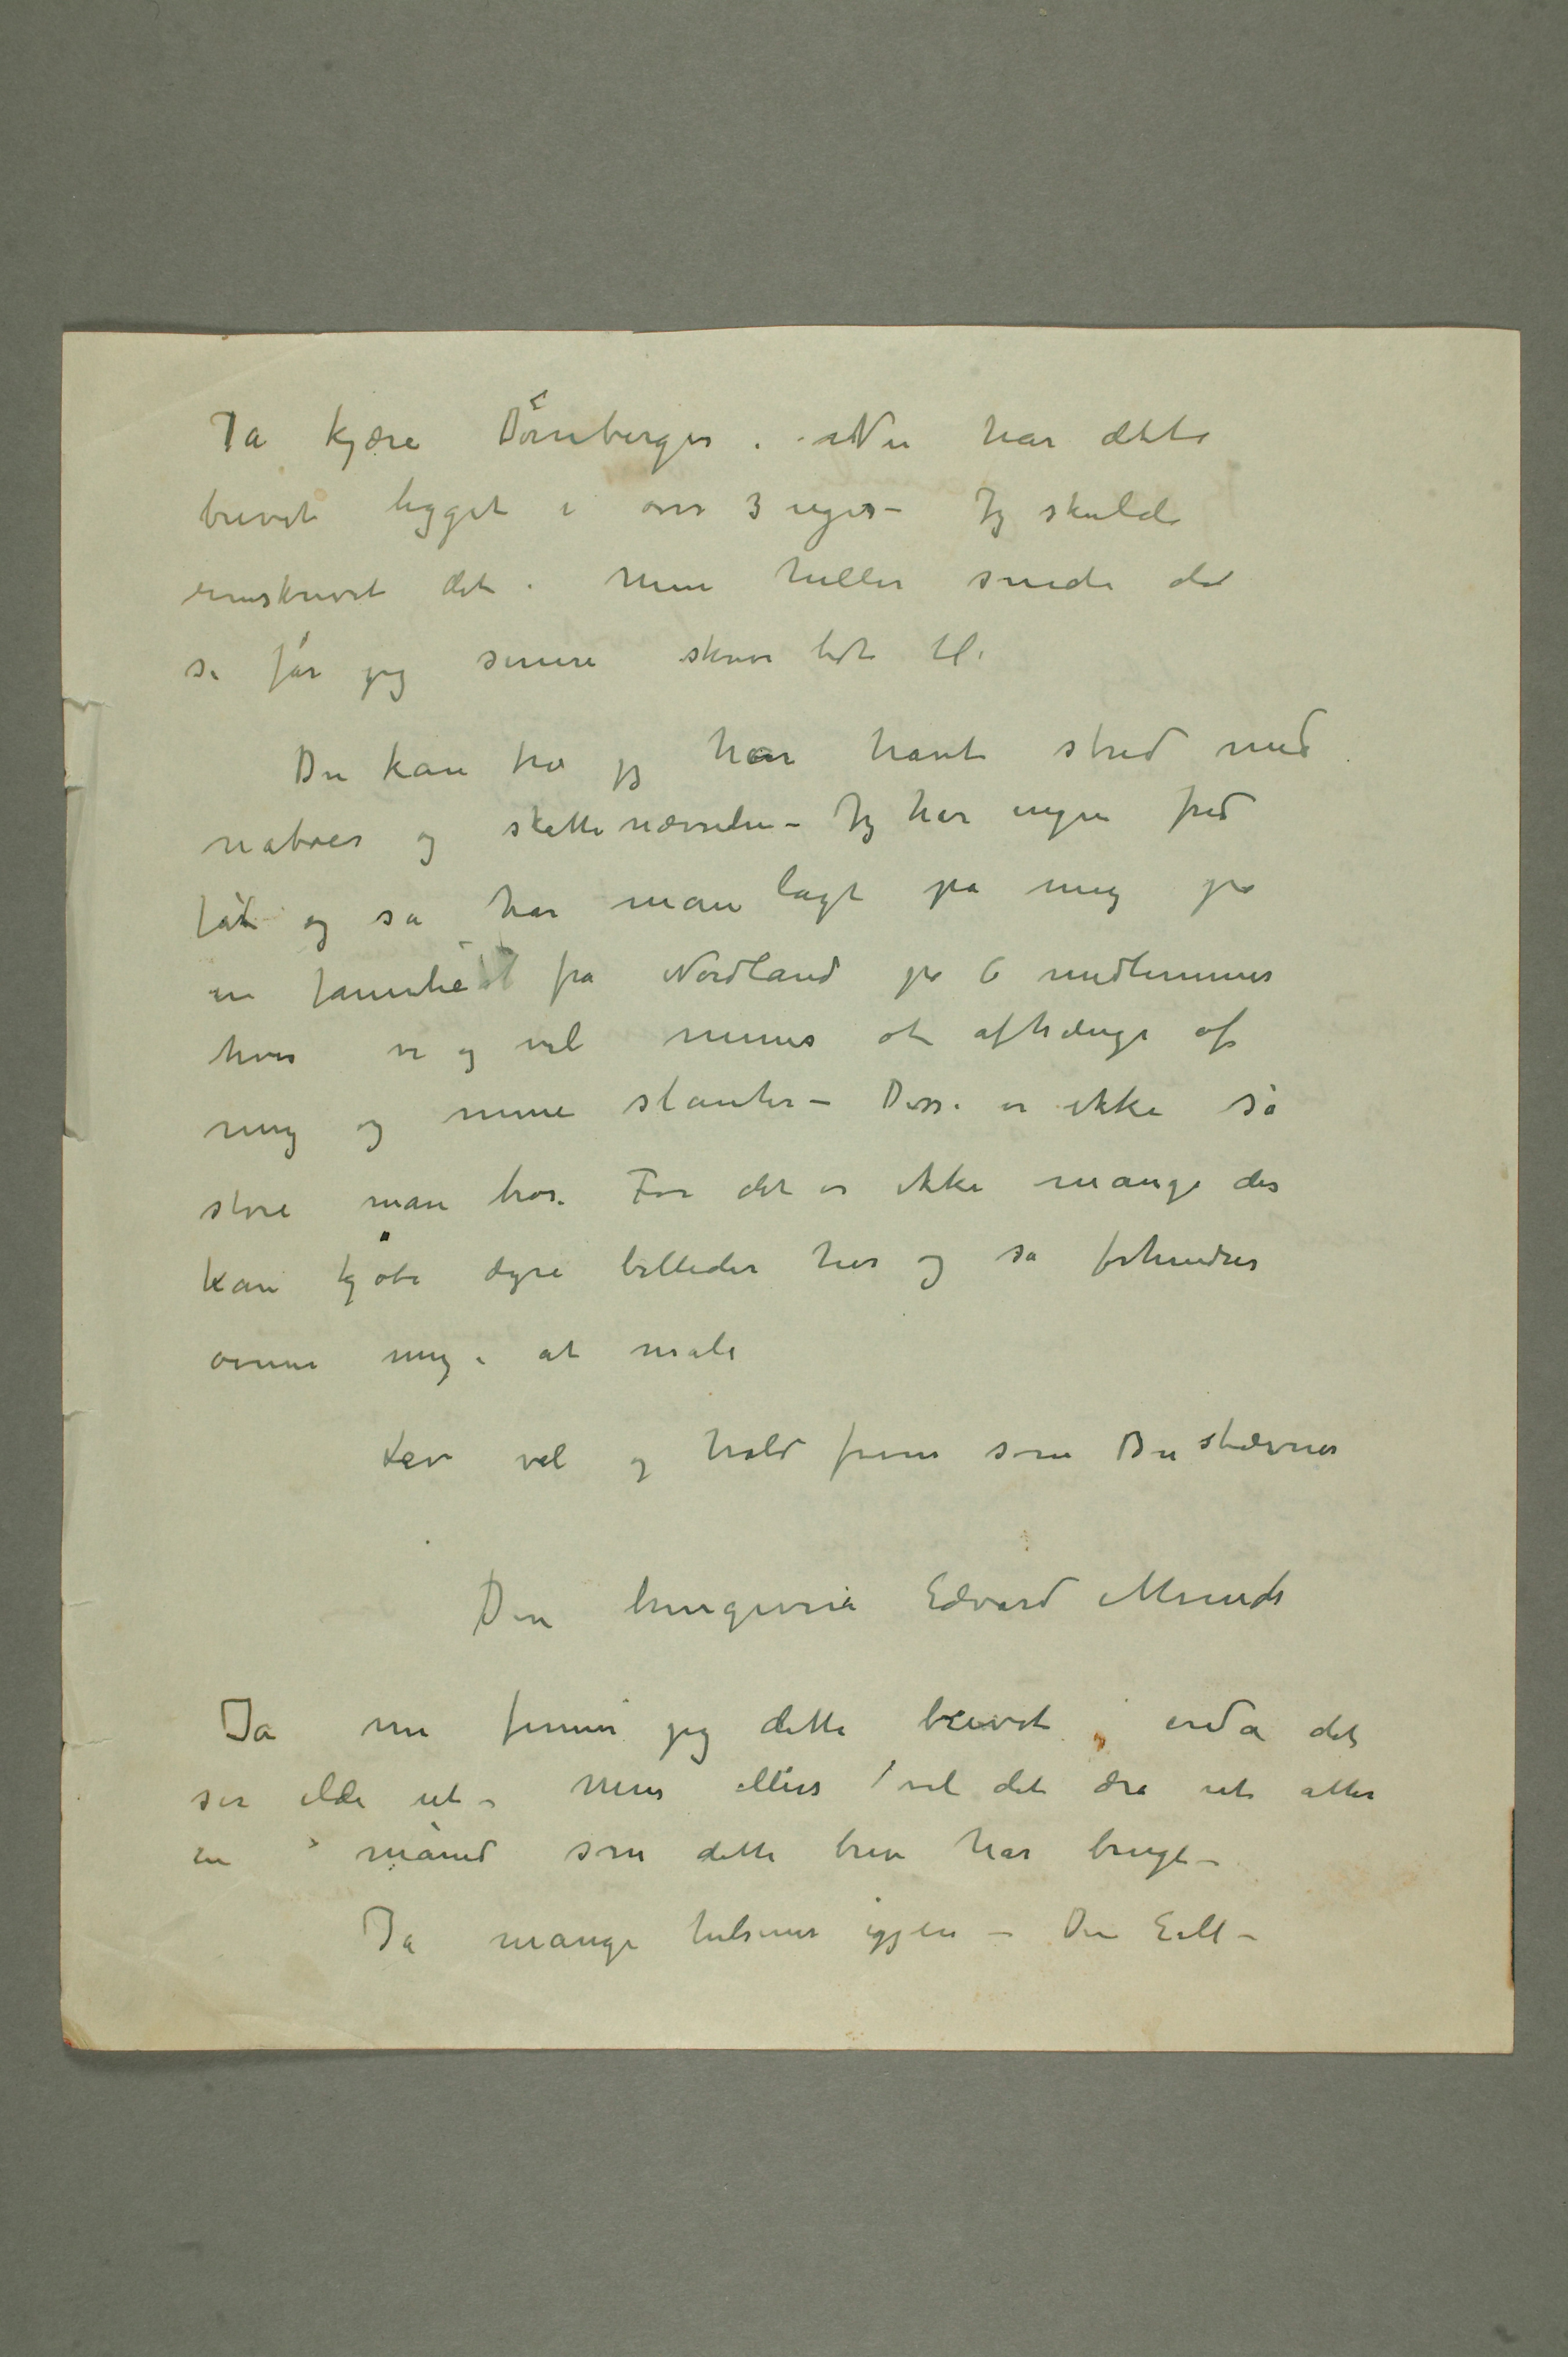 Ja kjære Dörnberger. Nu har dette
brevet ligget i over 3 uger – Jeg skulde
renskrevet det. Men heller sende det
så får jeg senere skrive lidt til.
Du kan tro jeg har havt strid med
naboer og skattevæsenden – Jeg har ingen fred
fåt og så har man lagt på mig
en familie fra Nordland på 6 medlemmer
hver og vel menes at afhænge af
mig og mine slanter – Disse er ikke så
store man tror. For det er ikke mange der
kan kjøbe dyre billeder her og så forhindrer
mig i at male
Lev vel og hold frem som Du stævner
Din hengivne Edvard Munch
Ja nu finner jeg dette brevet, enda det
ser ilde ut – Men ellers vil det dra ut atter
en måned som dette brev har brugt –
Ja mange hilsener igjen – Din E M –